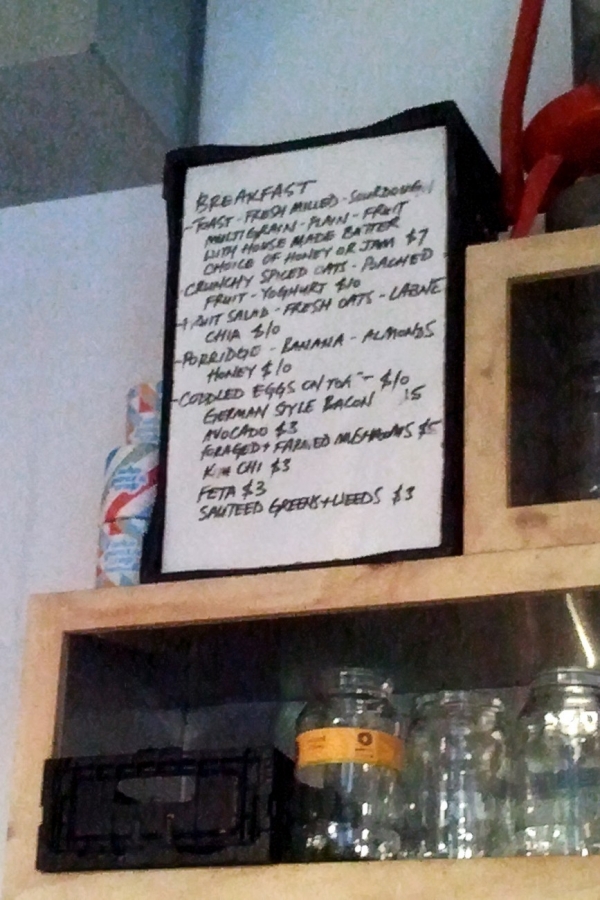 BREAKFAST
-TOAST - FRESH MILLED - SOURDOUGH
MULTIGRAIN - PLAIN - FRUIT
WITH HOUSE MADE BUTTER
CHOICE OF HONEY OR JAM $7
-CRUNCHY SPICED OATS - POACHED
FRUIT - YOGHURT $10
-FRUIT SALAD - FRESH OATS - LABNE
CHIA $10
-PORRIDGE - BANANA - ALMONDS
HONEY $10
-CODDLED EGGS ON TOAST - $10
GERMAN STYLE BACON $5
AVOCADO $3
FORAGED + FARMED MUSHROOMS $5
KIM CHI $3
FETA $3
SAUTEED GREENS + WEEDS $3